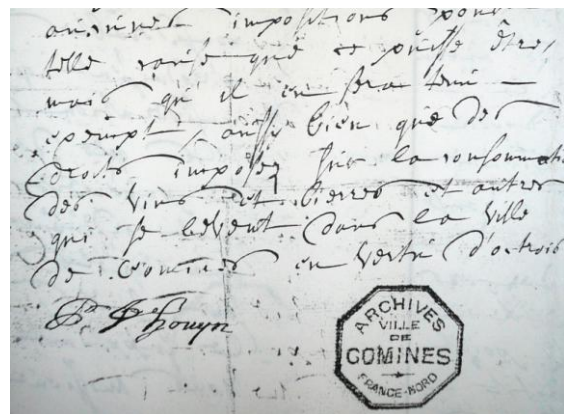 aucunes impositions pour
telle cause que ce puisse être,
mais qu'il en sera tenu
exempt, aussi bien que des
droits imposez sur la consommati
des vins et bierres et autres
qui se levent dans la ville
de Comines en vertu d'octrois
ARCHIVES
VILLE
DE
COMINES
FRANCE-NORD